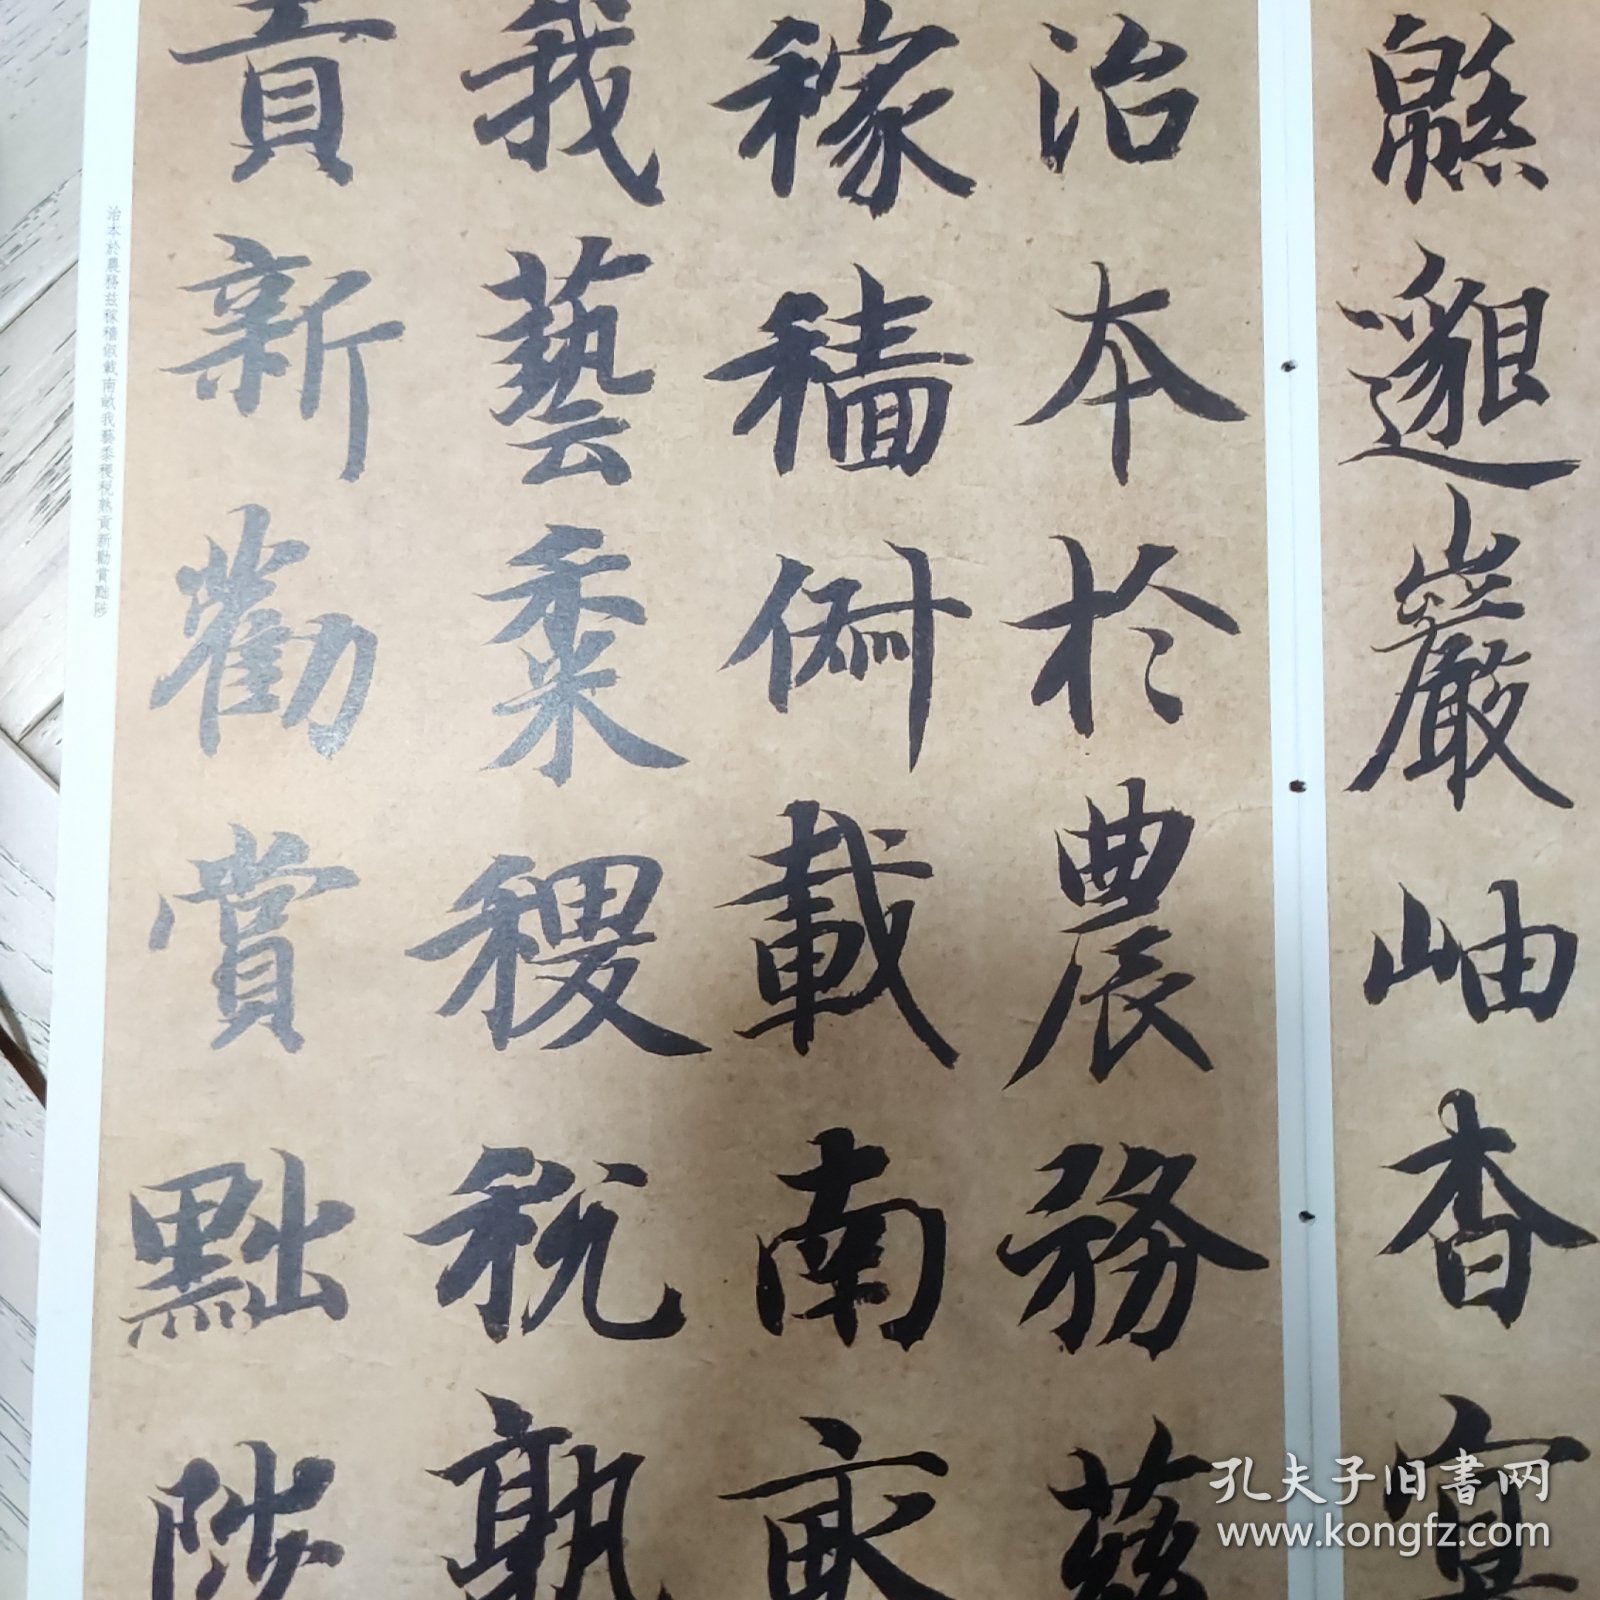 緜邈巖岫杳冥
治本於農務茲
稼穡俶載南畝
我藝黍稷稅熟
貢新勸賞黜陟
治本於農務茲稼穡俶載南畝我藝黍稷稅熟貢新勸賞黜陟
孔夫子旧書网
www.kongfz.com